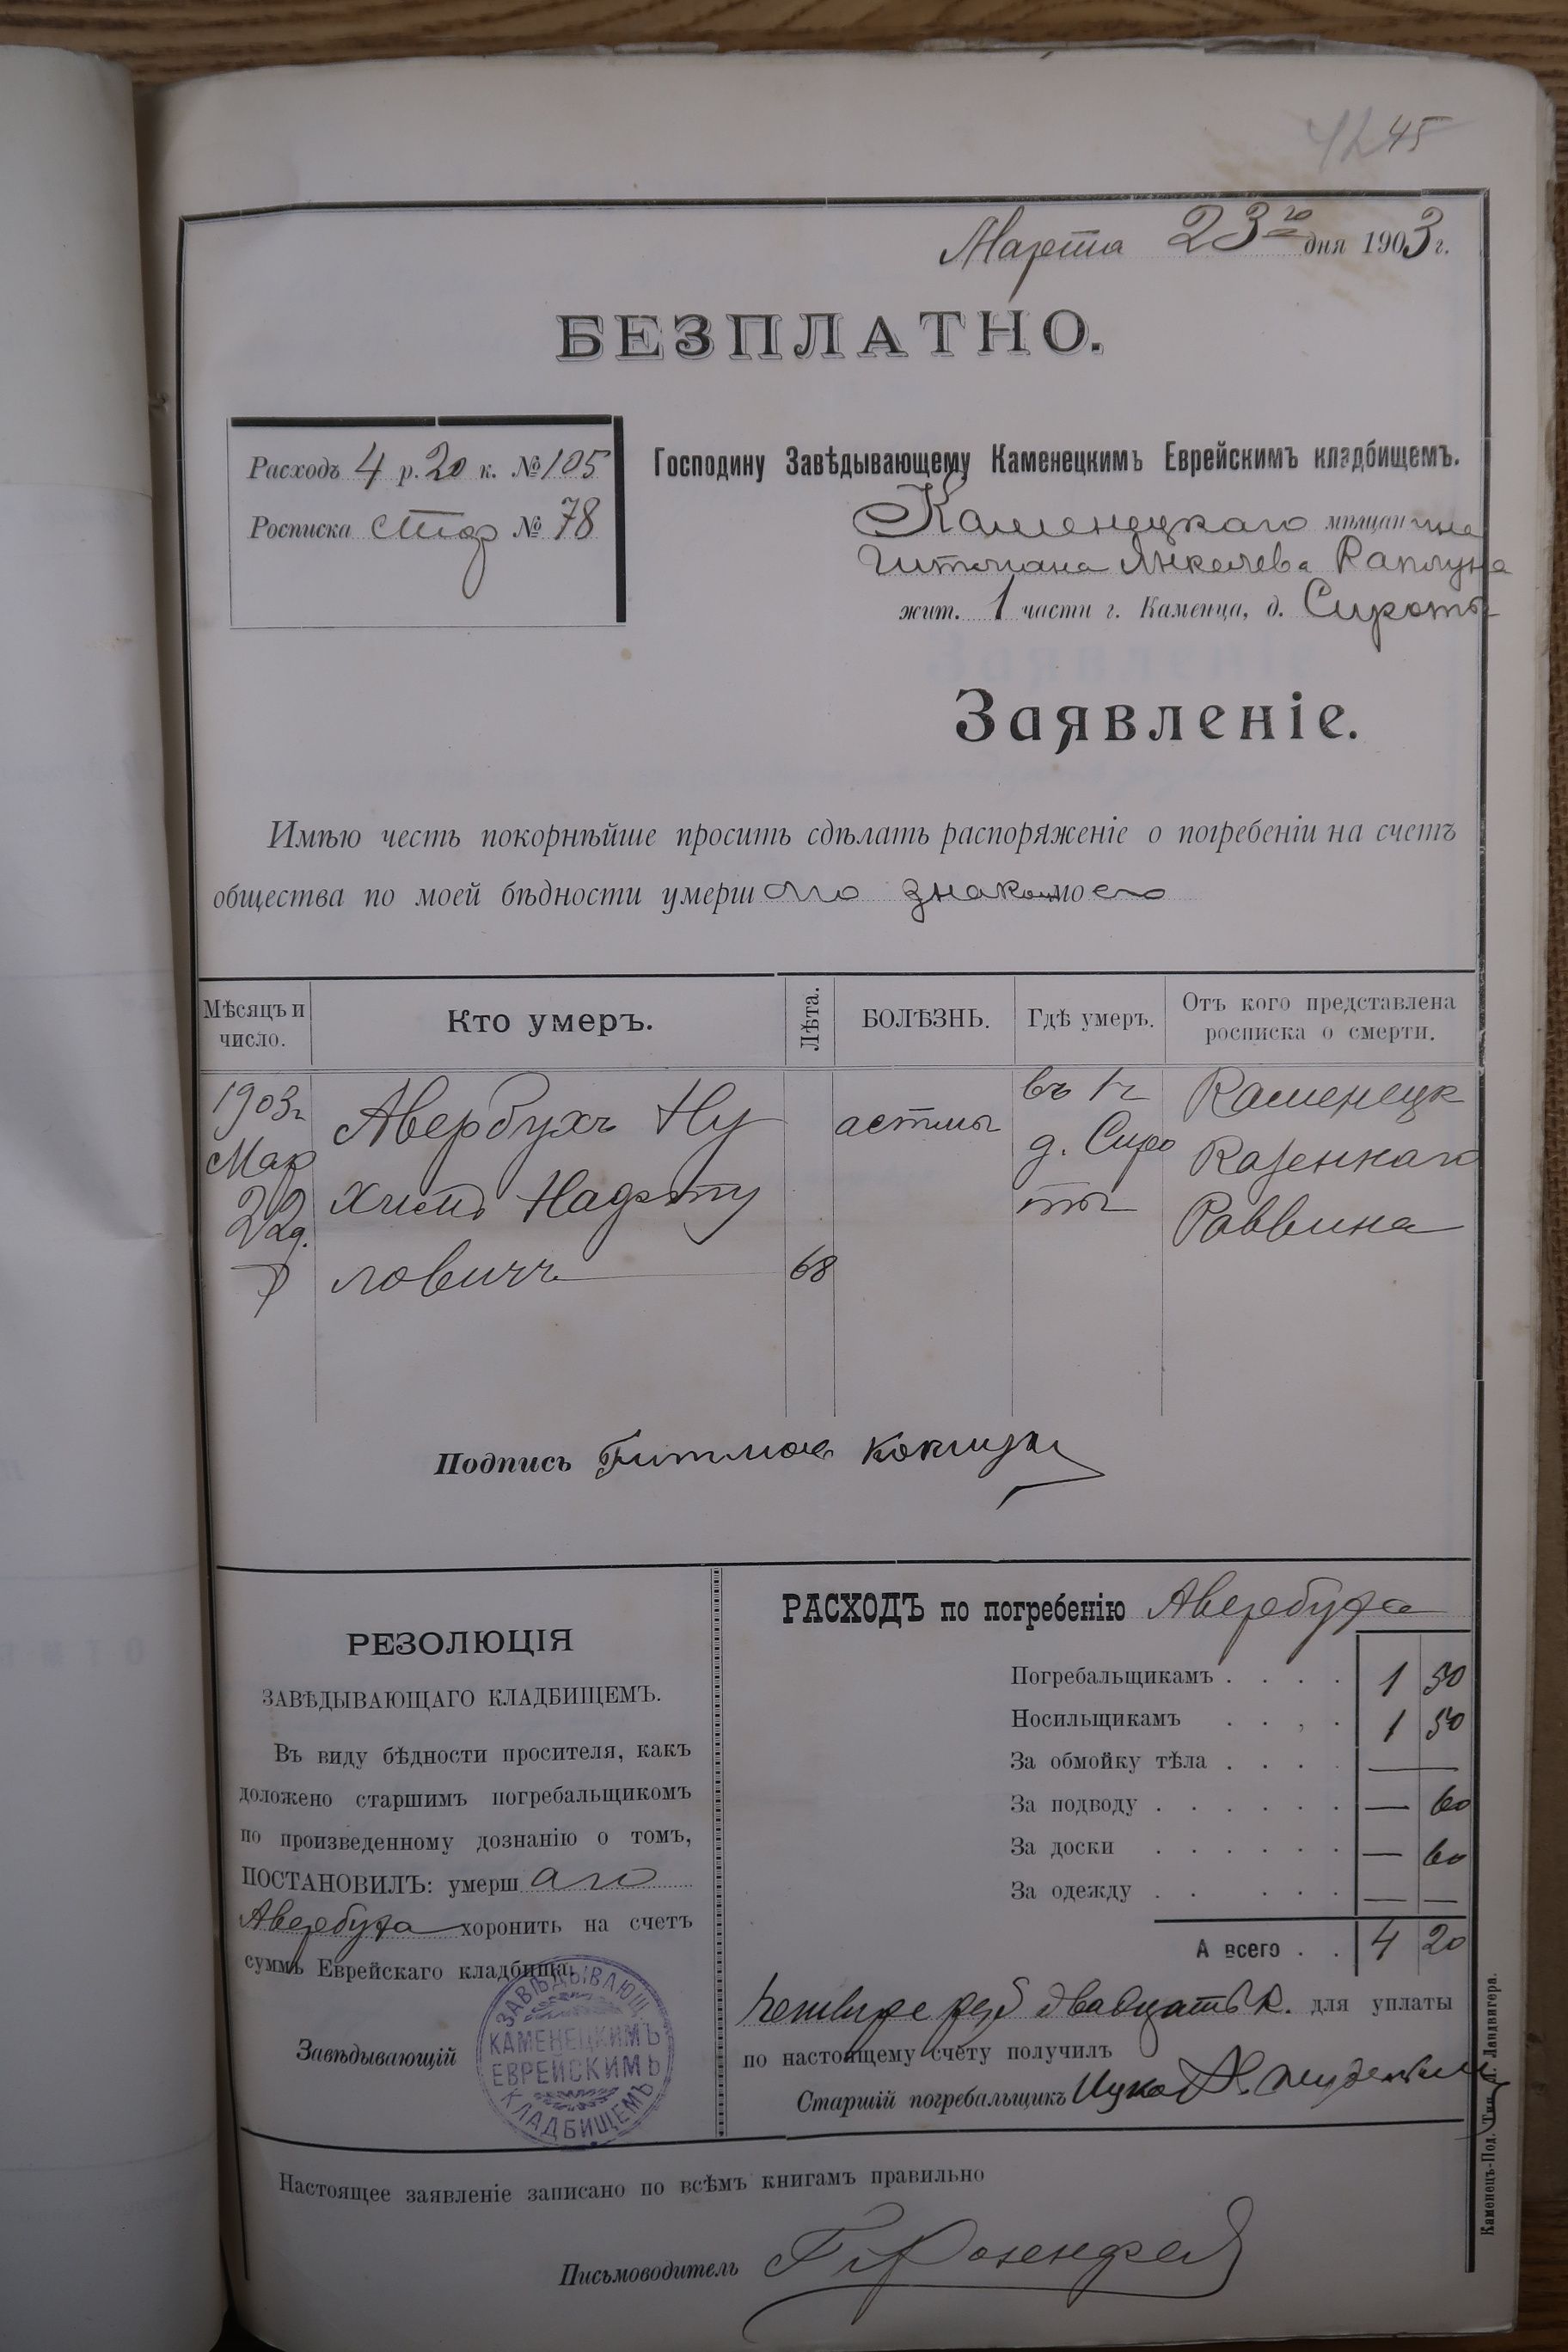 42 45
Марта 23го дня 1903 г.
БЕЗПЛАТНО.
Расходъ 4 р. 20 к. № 105
Росписка № 78
Господину Завѣдывающему Каменецкимъ Еврейскимъ кладбищемъ.
Каменецкаго мѣщанина
Гитмана Янкелева Каплуна
жит. 1 части г. Каменца, д. Сироты
Заявленіе.
Имѣю честь покорнѣйше просить сдѣлать распоряженіе о погребеніи на счетъ
общества по моей бѣдности умершаго знакомого
Мѣсяцъ и число.
Кто умеръ.
Лѣта.
БОЛѢЗНЬ.
Гдѣ умеръ.
Отъ кого представлена росписка о смерти.
1903г Мар 22д.
Авербухъ Ну
химъ Нафту
ловичъ
68
астмы
въ 1 ч
д. Сиро
ты
Каменецк
Казеннаго
Раввина
Подпись Гитман
РЕЗОЛЮЦІЯ
ЗАВѢДЫВАЮЩАГО КЛАДБИЩЕМЪ.
Въ виду бѣдности просителя, какъ
доложено старшимъ погребальщикомъ
по произведенному дознанію о томъ,
ПОСТАНОВИЛЪ: умершаго
Авербуха хоронить на счетъ
суммъ Еврейскаго кладбища.
Завѣдывающій
ЗАВѢДЫВАЮЩ.
КАМЕНЕЦКИМЪ
ЕВРЕЙСКИМЪ
КЛАДБИЩЕМЪ
РАСХОДЪ по погребенію Авербуха
Погребальщикамъ . . . . 1 50
Носильщикамъ . . , . 1 50
За обмойку тѣла . . . . —
За подводу . . . . . . — 60
За доски . . . . . . — 60
За одежду . . . . . — —
А всего . . 4 20
Четыре руб двадцать к. для уплаты
по настоящему счету получилъ
Старшій погребальщикъ
Настоящее заявленіе записано по всѣмъ книгамъ правильно
Письмоводитель Розенфел
Каменецъ-Под. Тип. Л. Ландвигера.